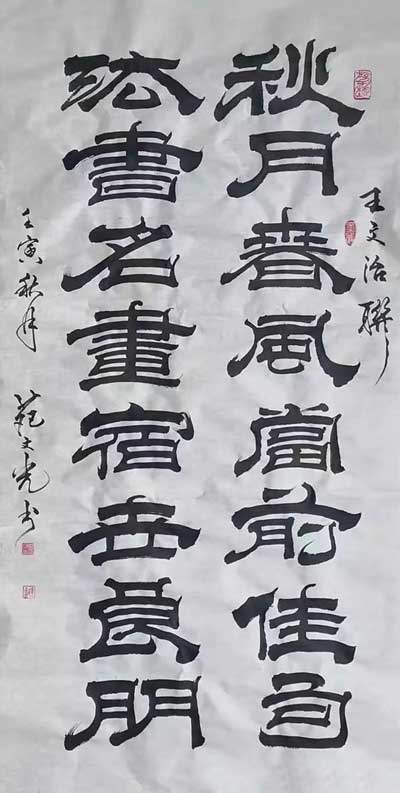 秋月春風當前佳句
王文治聯
法書名畫宿世良朋
壬寅秋月 范文光书